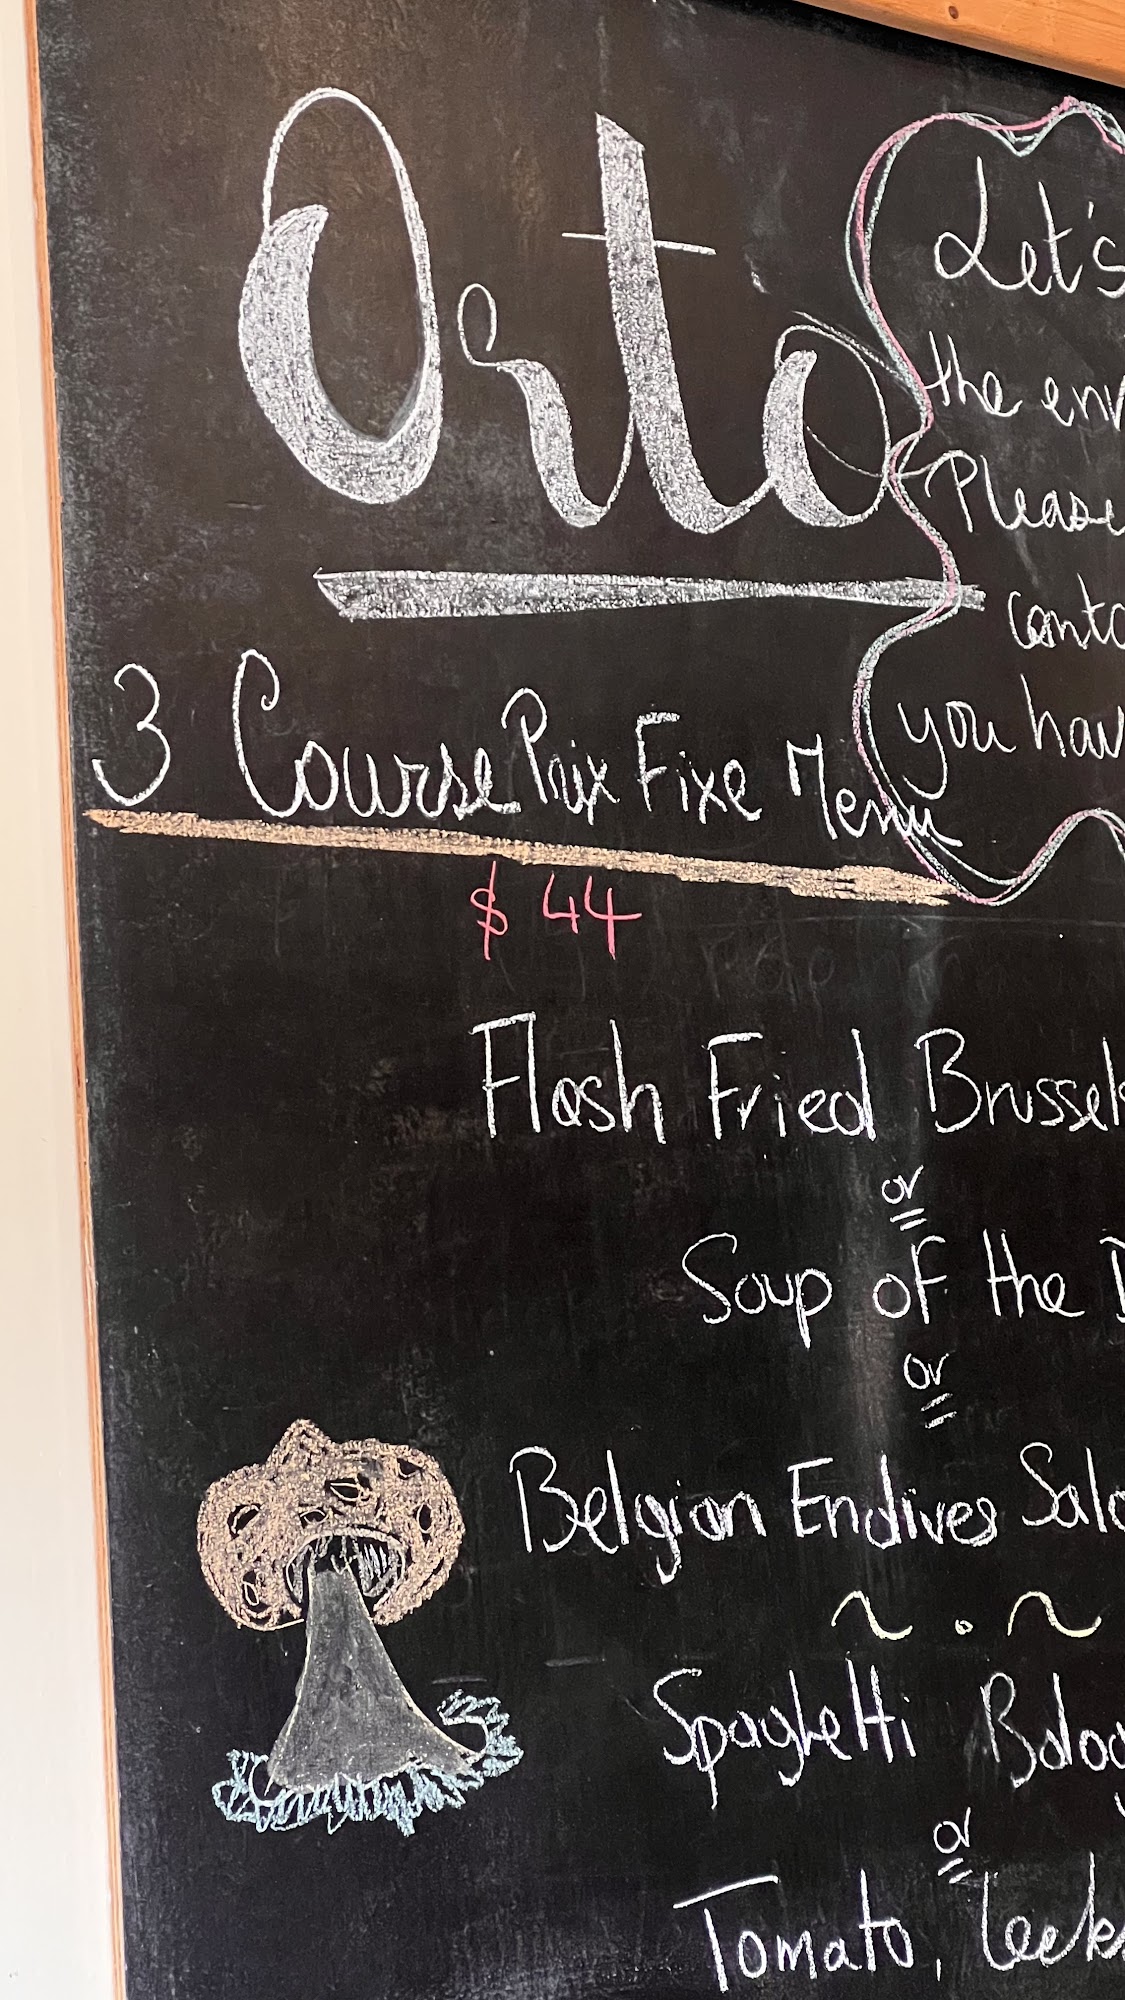 Orto
Let's
the env
Please
conta
you hav
3 Course Prix Fixe Menu
$ 44
Flash Fried Brussels
or
Soup of the D
or
Belgian Endives Sala
~ . ~
Spaghetti Bolog
or
Tomato, Leeks